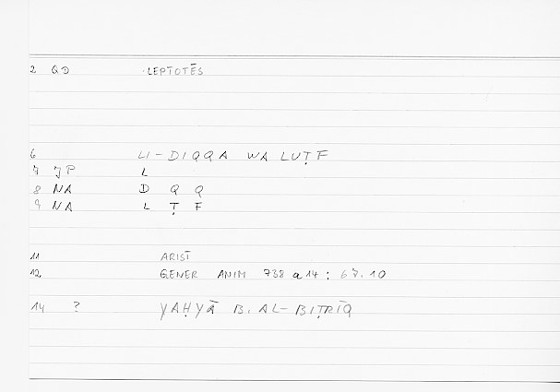 2 QD LEPTOTĒS
6 LI-DIQQA WA LUṬF
7 JP L
8 NA D Q Q
9 NA L Ṭ F
11 ARIST
12 GENER ANIM 738 a 14 : 67.10
14 ? YAḤYĀ B. AL-BIṬRĪQ